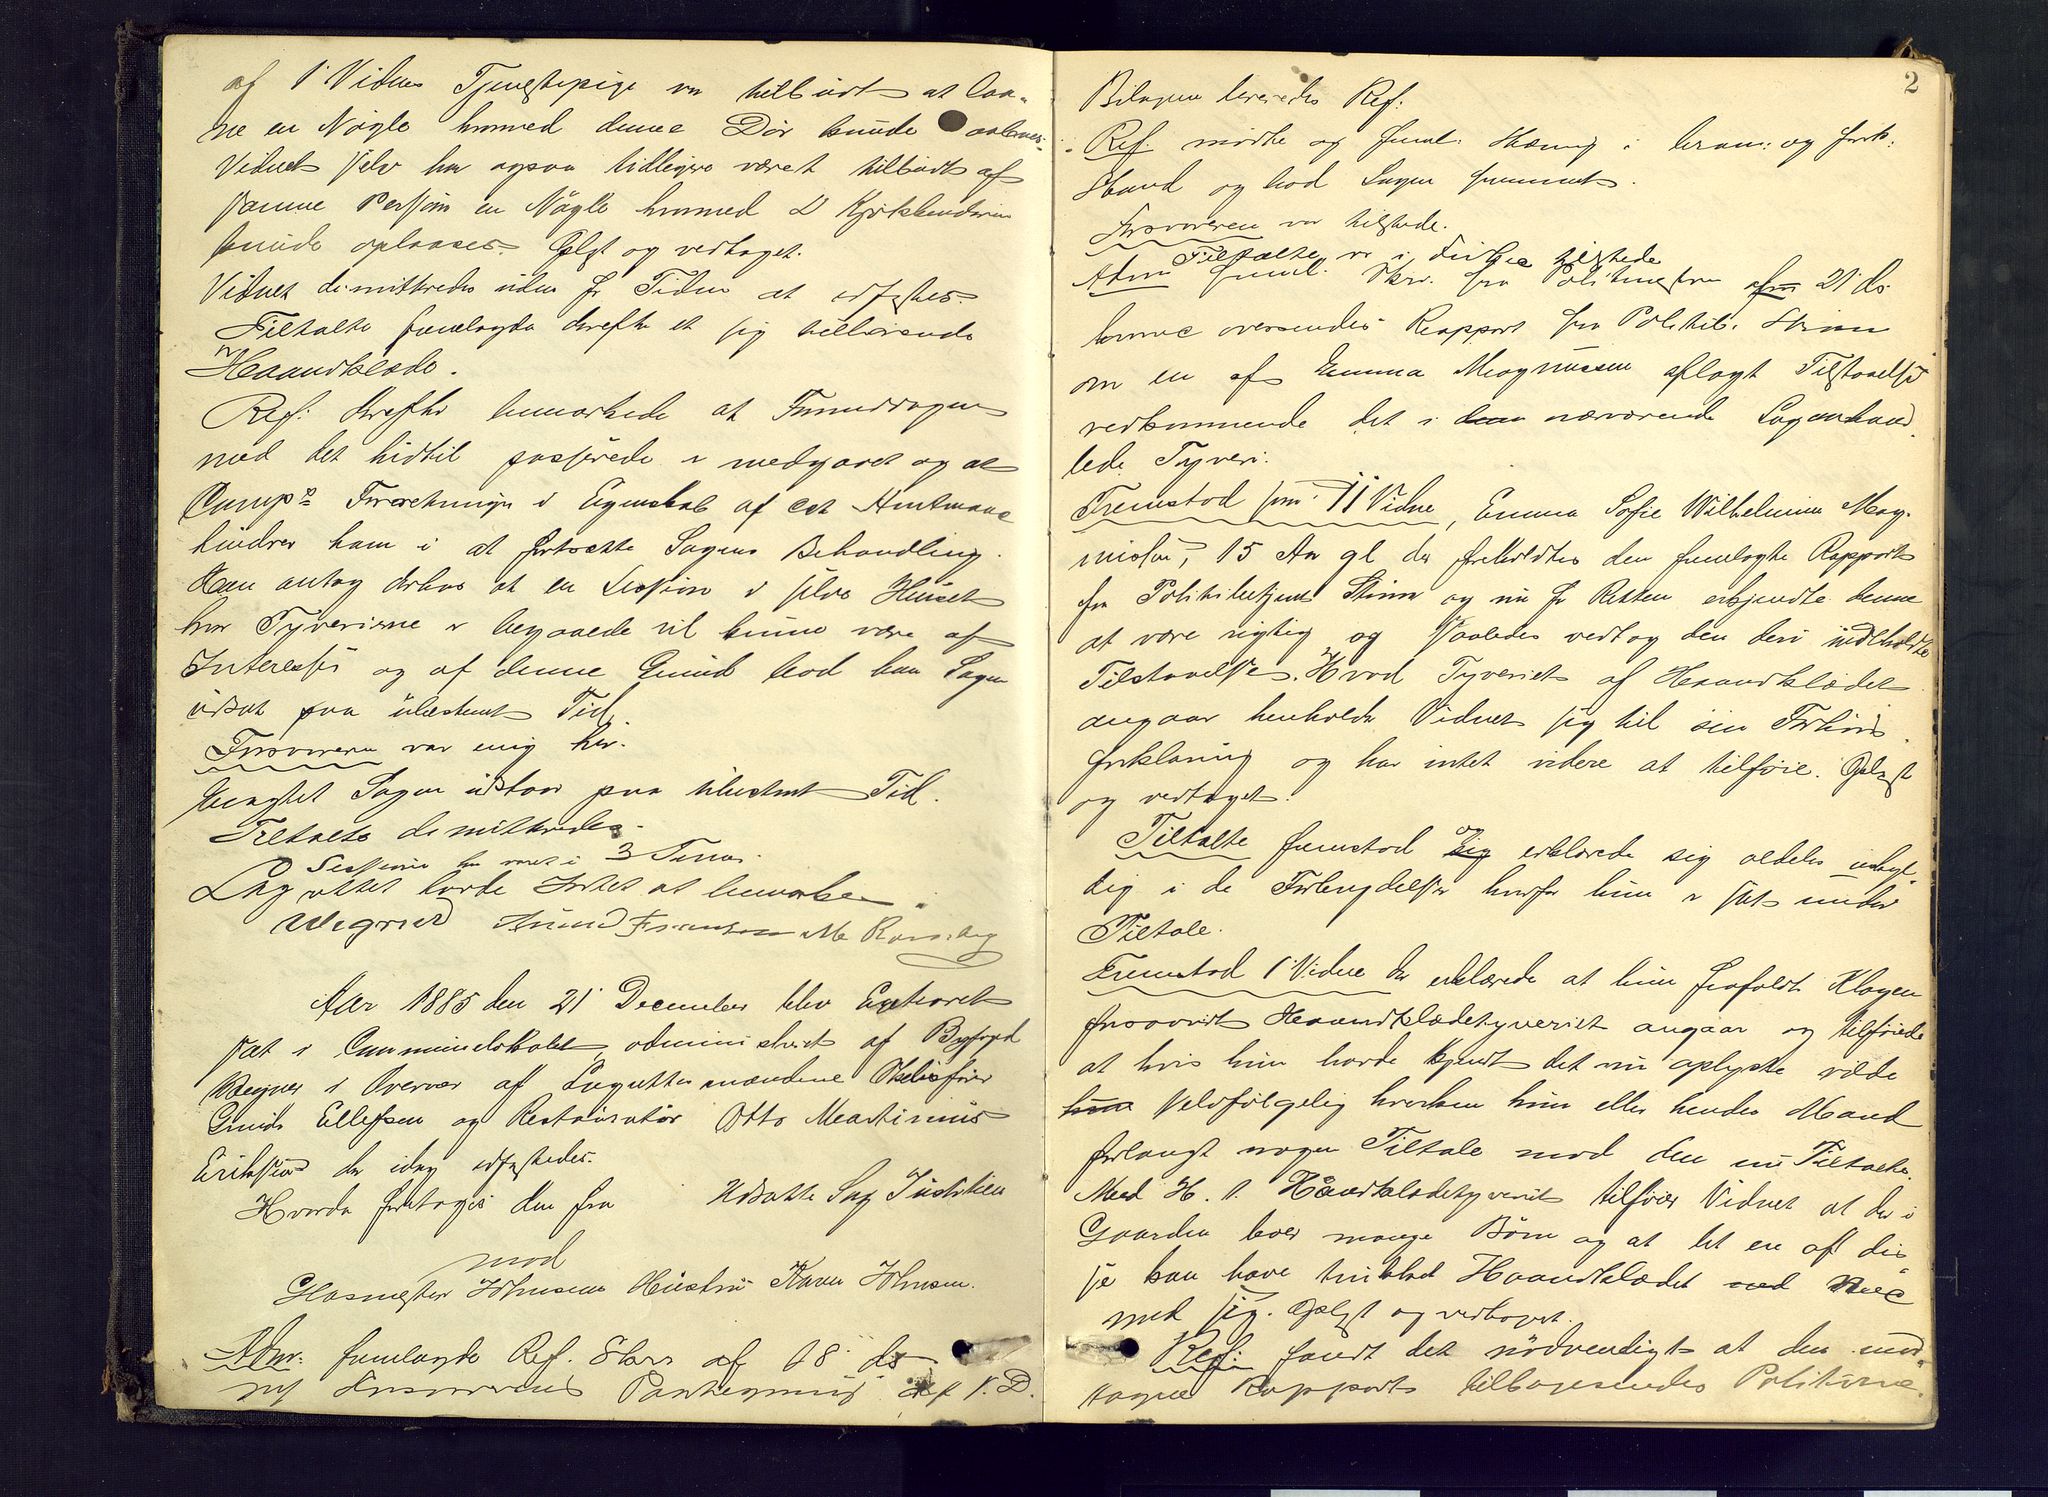 af 1' Vidnes Tjenestepige var tilbudt at laa-
ne en Nøgle hvormed denne Dør kunde aabnes.
Vidnet selv har ogsaa tidligere været tilbudt af
samme Person en Nøgle hvormed 2 Kjøkkendøre
kunde oplaases. Oplæst og vedtaget.
Vidnet dimitteredes uden for Tiden at edfæstes.
Tiltalte fremlagde derefter et sig tilhørende
Haandklæde.
Ref: derefter bemærkede at Formiddagen
med det hidtil passerede er medgaaet og at
Comp's Forretninger i Egenskab af cst Amtmand
hindrer ham i at fortsætte Sagens Behandling.
Han antog derhos at en Session i selve Huset
hvor Tyverierne er begaaede vil kunne være af
Interesse og af denne Grund bad han Sagen
udsat paa ubestemt Tid.
Forsvareren var enig her.
Eragtet Sagen udstaar paa ubestemt Tid.
Tiltalte dimitteredes.
Sessionen har varet i 3 Timer.
Lagrettet havde Intet at bemærke.
Wegner
Aar 1885 den 21 December blev Extraret
sat i Communelokalet administreret af Byfoged
Wegner i Overvær af Lagrettesmændene
Ellefsen og Restauratør Otto Martinius
Eriksen der idag edfæstedes.
Hvorda foretoges den fra Udsatte Sag Justitien
mod
Glasmester Johnsens Hustru Karen Johnsen.
Adm: fremlagde Ref. Skr af 18 ds
Forsvarerens Paategning
2
Bilagene leveredes Ref:
Ref. mødte og freml. Stævning i
Stand og bad Sagen fremmet.
Forsvareren var tilstede.
Tiltalte var i Frihed tilstede
Adm freml. Skr. fra Politimesteren af 21 ds
hvormed oversendes Rapport fra Politib. Stian
om en af Emma Magnussen aflagt Tilstaaelse
vedkommende det i nærværende Sag omhand
lede Tyveri.
Fremstod som 11 Vidne, Emma Sofie Wilhelmine Mag-
nussen, 15 Aar gl der foreholdtes den fremlagte Rapport
fra Politibetjent og nu for Retten erkjendte denne
at være rigtig og saaledes vedtog den deri indeholdte
Tilstaaelse. Hvad Tyveriet af Haandklædet
angaar henholdt Vidnet sig til sin Forhørs
forklaring og har intet videre at tilføie. Oplæst
og vedtaget.
Tiltalte fremstod og erklærede sig aldeles uskyl-
dig i de Forbrydelser hvorfor hun er sat under
Tiltale.
Fremstod 1' Vidne der erklærede at hun frafaldt Klagen
forsaavidt Haandklædetyveriet angaar og tilføiede
at hvis hun havde kjendt det nu oplyste vilde
selvfølgelig hverken hun eller hendes Mand
forlangt nogen Tiltale mod den nu Tiltalte.
Med H. t. Haandklædetyveriet tilføier Vidnet at der i
Gaarden boer mange Børn og at let en af dis
se kan have trukket Haandklædet ned
med sig. Oplæst og vedtaget.
Ref: fandt det nødvendigt at den mod
tagne Rapport tilbagesendes Politime.